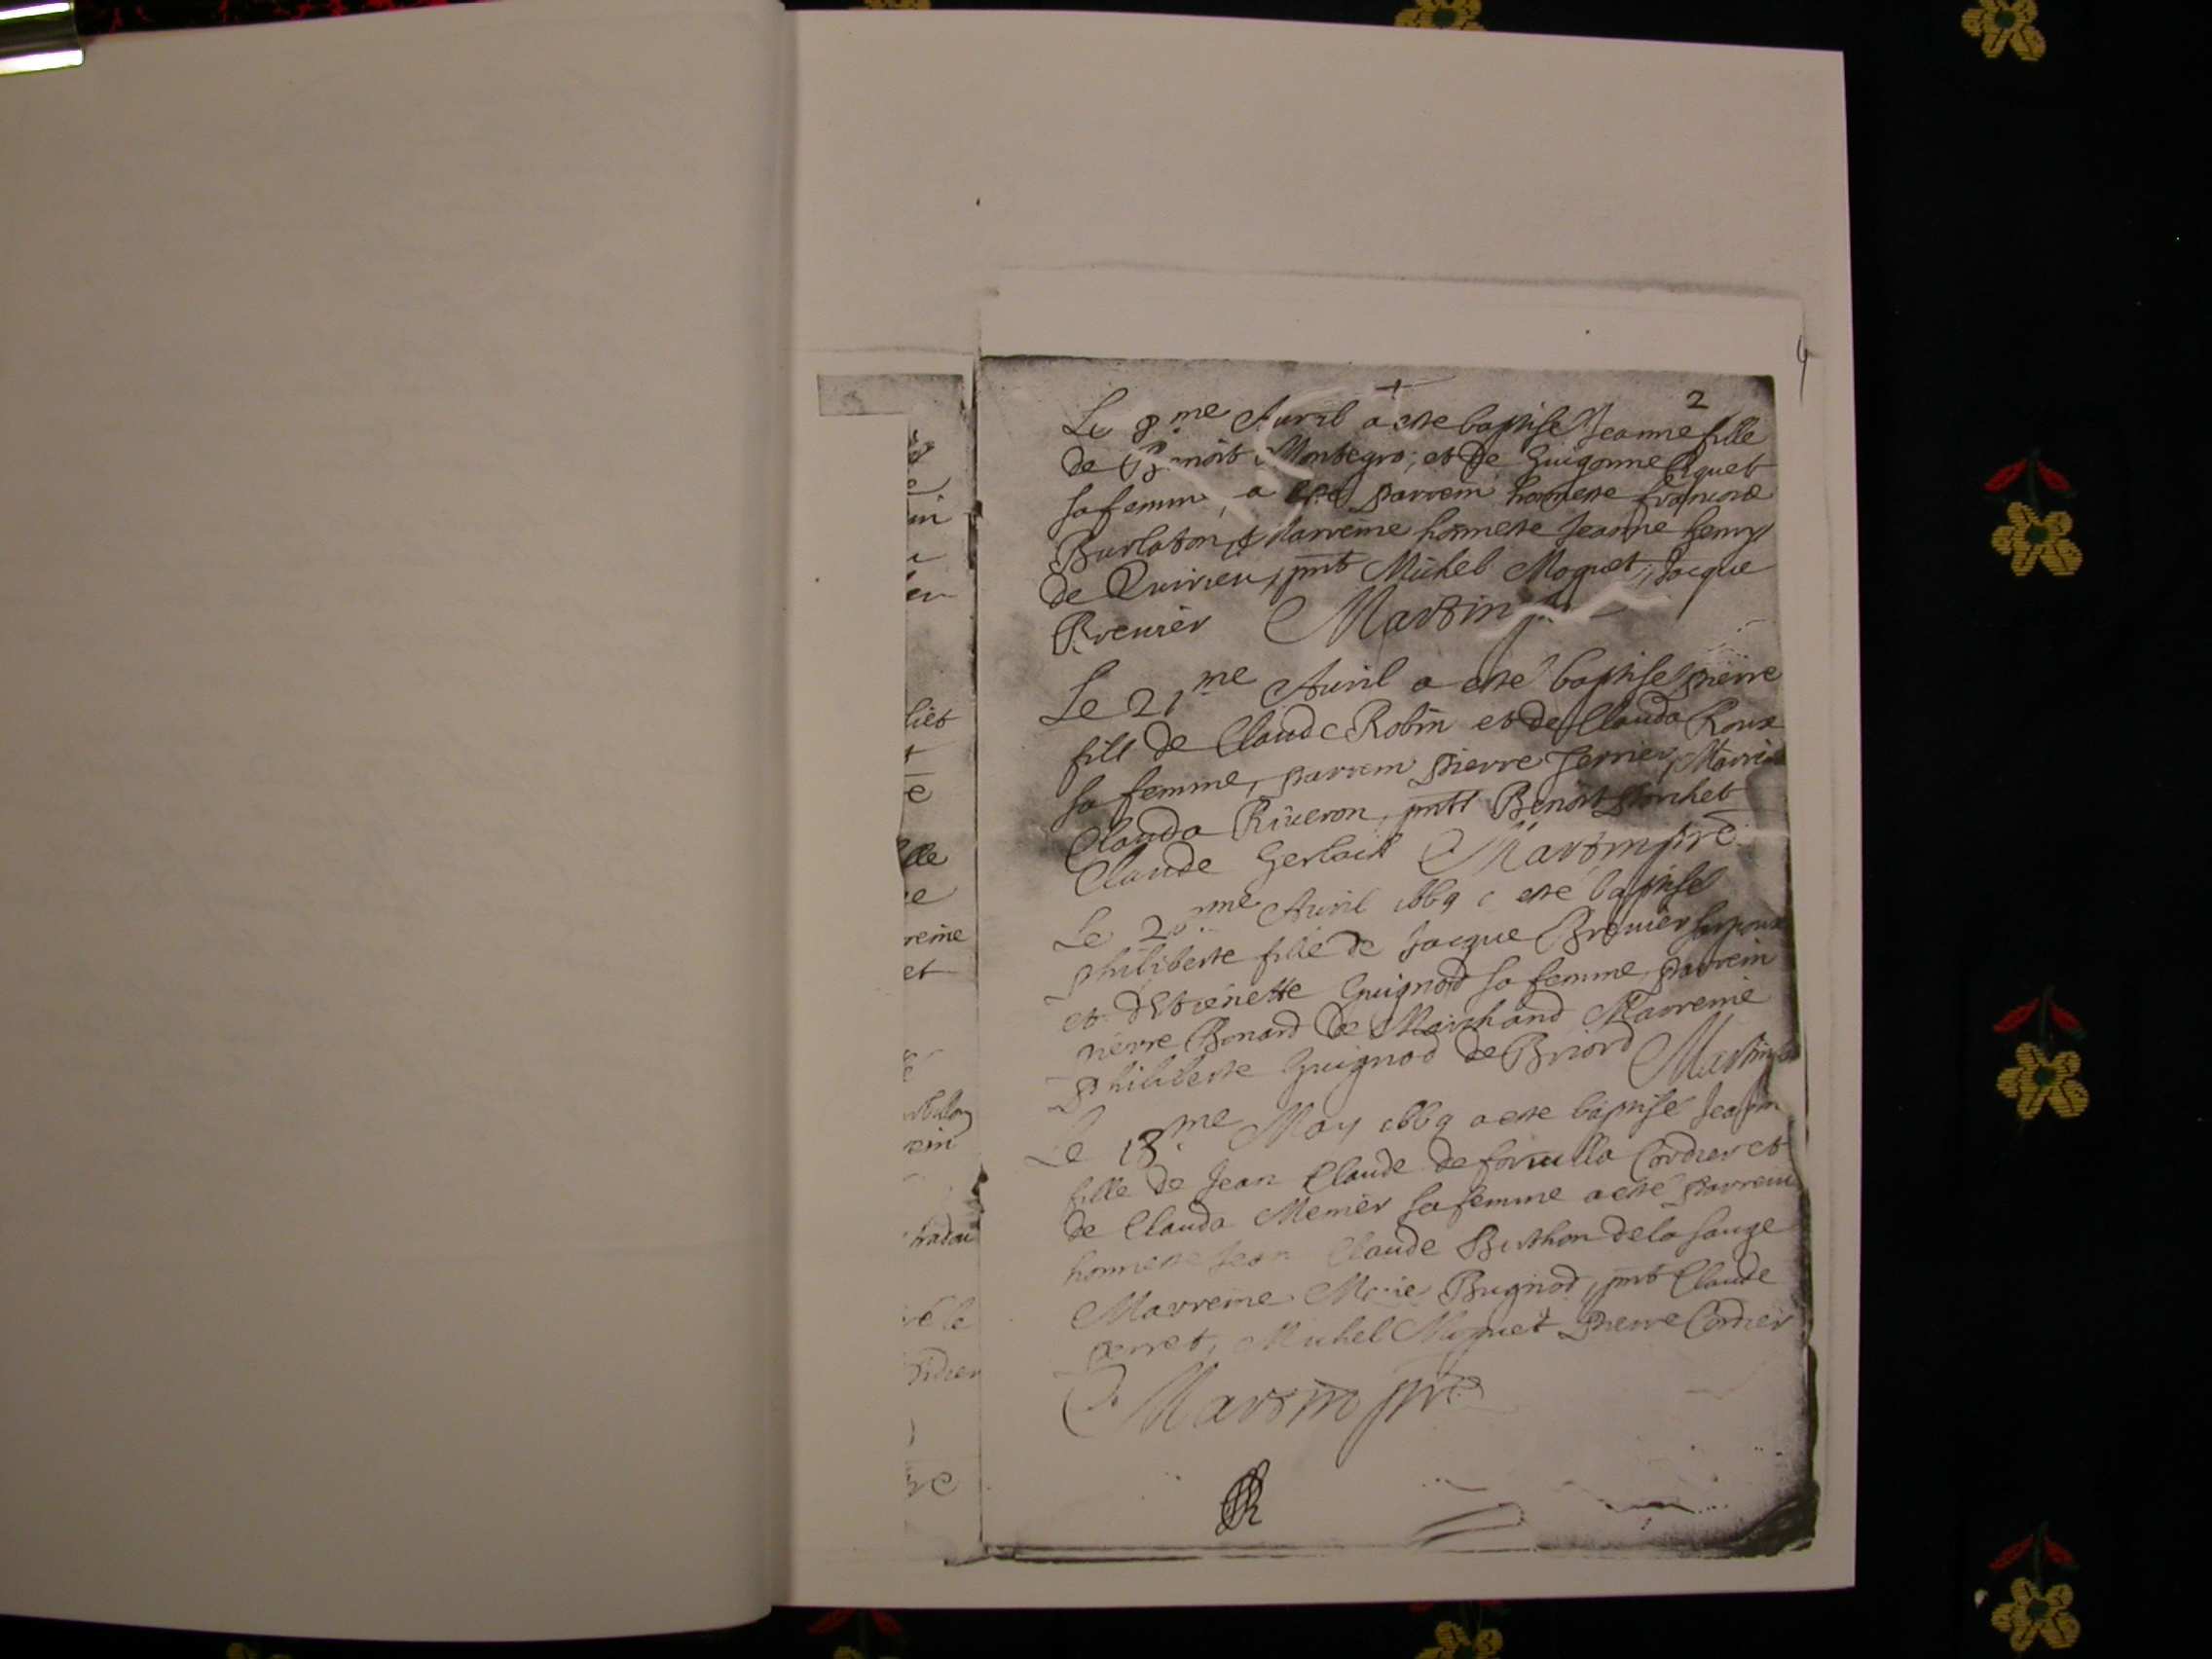 2
Le 8.me Auril a esté baptisé Jeanne fille
de Benoit Montegro, et de Guigonne Piquet
sa femme, a esté parrein honneste Francois
Burlaton, & Marreine honneste Jeanne Henry
de Quirieu, pnt Michel Moguet, Jacque
Breuier Martin
Le 21.me Auril a esté baptisé pierre
fils de Claude Robin et de Clauda Roux
sa femme, parrein pierre Ferrier, Marreine
Clauda Riueron, pntt Benoit ponchet
Claude Gerlaist Martin pre.
Le me Auril 1669 a esté baptisé
philiberte fille de Jacque Breuier
et d'Estienette Guignod sa femme, parrein
pierre Bonard de Marchand Marreine
philiberte Guignod de Briord Martin
Le 13.me May 1669 a esté baptisé
fille de Jean Claude de Cordier et
de Clauda Memier sa femme a esté parrein
honneste Jean Claude Buthon de la Sauge
Marreine Marie Bugnod, pnt Claude
perret, Michel Moguet pierre Cordier
Martin pre
lle
reine
et
rein